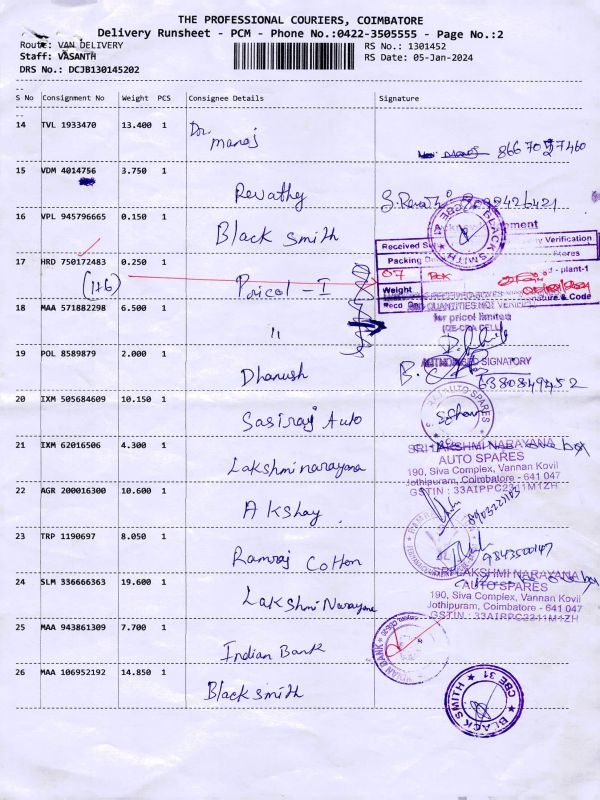 THE PROFESSIONAL COURIERS, COIMBATORE
Delivery Runsheet - PCM - Phone No.:0422-3505555 - Page No.:2
Route: VAN DELIVERY
RS No.: 1301452
Staff: VASANTH
RS Date: 05-Jan-2024
DRS No.: DCJB130145202
S No Consignment No Weight PCS Consignee Details Signature
14 TVL 1933470 13.400 1 Dr. manoj
15 VDM 4014756 3.750 1 Revathy
16 VPL 945796665 0.150 1 Black smith
BLACK SMITH
17 HRD 750172483 0.250 1 Pricol - I
(176)
Received
Verification
Stores
plant-1
Weight
Signature & Code
18 MAA 571882298 6.500 1 "
for pricol limited
19 POL 8589879 2.000 1 Dhanush
AUTHORISED SIGNATORY
6380849452
20 IXM 505684609 10.150 1 Sasiraj Auto
AUTO SPARES
21 IXM 62016506 4.300 1 Lakshmi narayana
SRI LAKSHMI NARAYANA
AUTO SPARES
190, Siva Complex, Vannan Kovil
Jothipuram, Coimbatore - 641 047
GSTIN : 33AIPPC2311M1ZH
22 AGR 200016300 10.600 1 Akshay
23 TRP 1190697 8.050 1 Ramraj Cotton
9843500147
24 SLM 336666363 19.600 1 Lakshmi Narayana
SRI LAKSHMI NARAYANA
AUTO SPARES
190, Siva Complex, Vannan Kovil
Jothipuram, Coimbatore - 641 047
GSTIN : 33AIPPC2311M1ZH
25 MAA 943861309 7.700 1 Indian Bank
26 MAA 106952192 14.850 1 Black smith
BLACK SMITH CBE 31